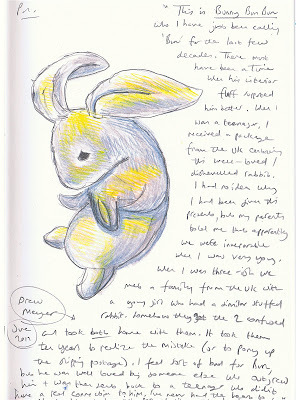 "This is Bunny Bun Bun
who I have just been calling
'Bun' for the last few
decades. There must
have been a time
when his interior
fluff supported
him better. When I
was a teenager, I
received a package
from the UK containing
this well-loved /
dishevelled rabbit.
I had no idea why
I had been given this
present, but my parents
told me that apparently
we were inseparable
when I was very young.
When I was three-ish we
met a family from the UK with
a young girl who had a similar stuffed
rabbit. Somehow they got the 2 confused
and took both home with them. It took them
ten years to realize the mistake (or to pony up
the shipping postage). I feel sort of bad for him,
he was well loved by someone else who outgrew
him & was then sent back to a teenager who didn't
have a real connection to him. I've never had the heart to
Drew
Meyer
June